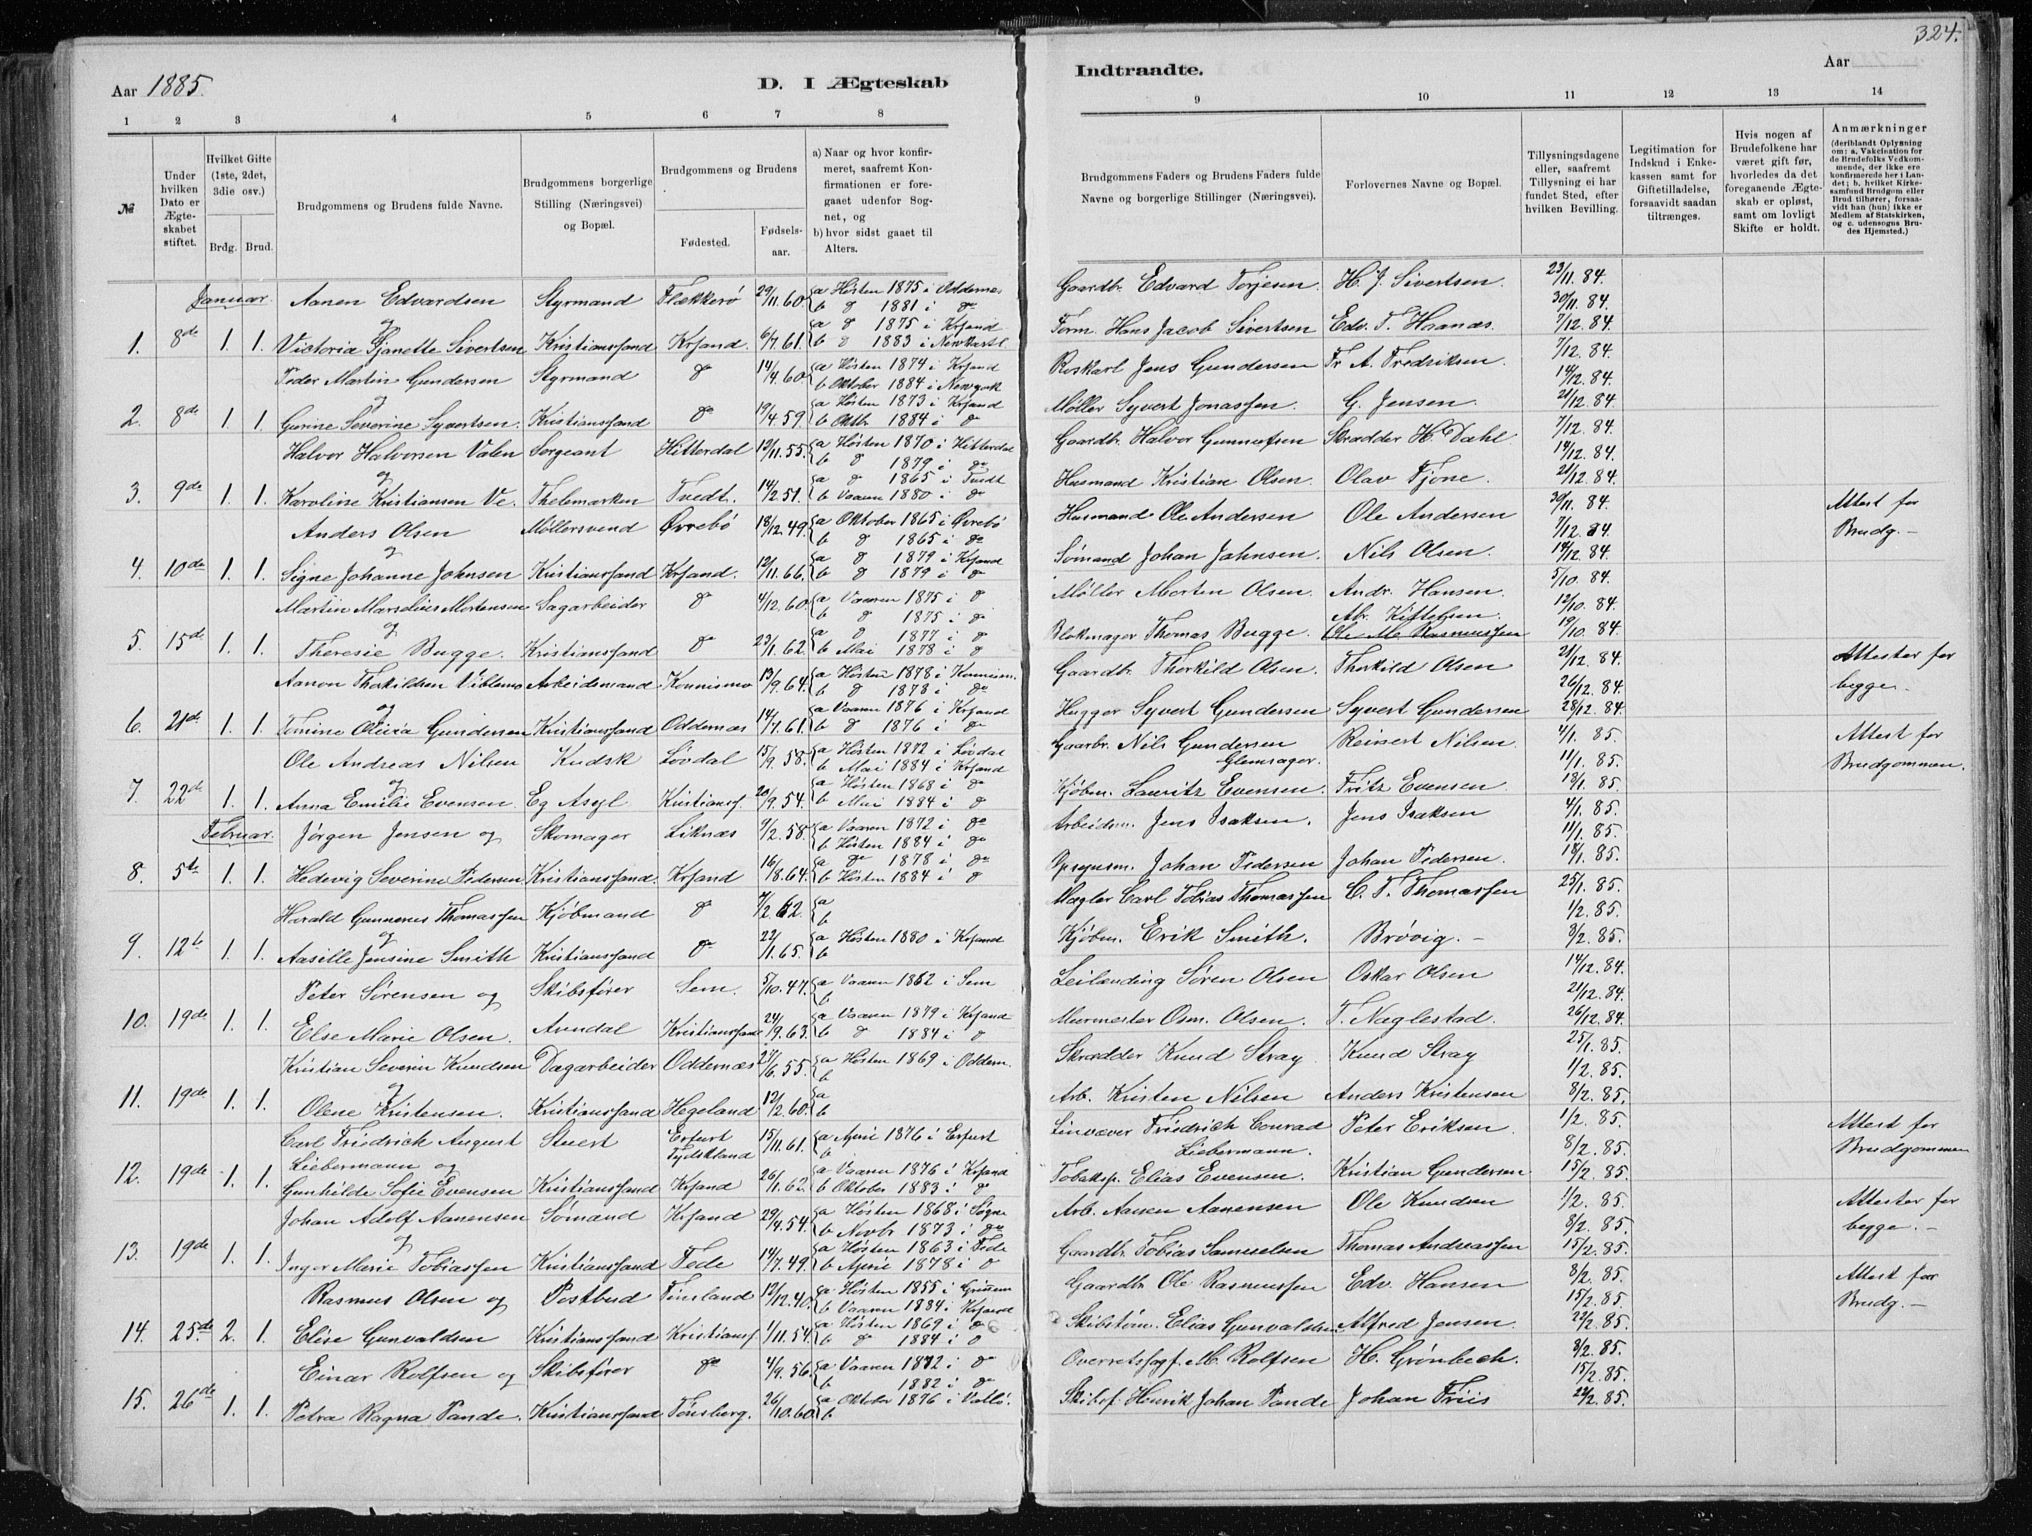 324.
Aar 1885.
D. I Ægteskab
Indtraadte.
Aar
1 2 3 4 5 6 7 8
9 10 11 12 13 14
№
Under hvilken Dato er Ægteskabet stiftet.
Hvilket Gifte (1ste, 2det, 3die osv.)
Brdg. Brud.
Brudgommens og Brudens fulde Navne.
Brudgommens borgerlige Stilling (Næringsvei) og Bopæl.
Brudgommens og Brudens
Fødested.
Fødselsaar.
a) Naar og hvor konfirmeret, saafremt Konfirmationen er foregaaet udenfor Sognet, og
b) hvor sidst gaaet til Alters.
Brudgommens Faders og Brudens Faders fulde Navne og borgerlige Stillinger (Næringsvei).
Forlovernes Navne og Bopæl.
Tillysningsdagene eller, saafremt Tillysning ei har fundet Sted, efter hvilken Bevilling.
Legitimation for Indskud i Enkekassen samt for Giftetilladelse, forsaavidt saadan tiltrænges.
Hvis nogen af Brudefolkene har været gift før, hvorledes da det foregaaende Ægteskab er opløst, samt om lovligt Skifte er holdt.
Anmærkninger (deriblandt Oplysning om: a. Vakcination for de Brudefolks Vedkommende, der ikke ere konfirmerede her i Landet; b. hvilket Kirkesamfund Brudgom eller Brud tilhører, forsaavidt han (hun) ikke er Medlem af Statskirken, og c. udensogns Brudes Hjemsted.)
Januar. Aanen Edvardsen Styrmand Flækkerø 29/11.60 a Høsten 1875 i Oddernes b d 1881 i do Gaardbr. Edvard Torjesen. H. J. Sivertsen. 23/11.84. 30/11.84.
1. 8de 1. 1. og Victoria Sivertsen Kristianssand Krsand. 6/7.61. a d 1875 i Krsand b d 1883 i Newkastl Form. Hans Jacob Sivertsen Edv. T. Haanæs. 7/12.84.
Peder Martin Gundersen Styrmand do 14/4.60 a Høsten 1874 i Krsand b Oktober 1884 i Newyork Jens Gundersen Fr. A. Fredriksen. 7/12.84. 14/12.84.
2. 8de 1. 1. og Gurine Severine Syvertsen. Kristianssand do 19/4.59. a Høsten 1873 i Krsand b Oktbr 1884 i d Møller Syvert Jonassen. G. Jensen. 21/12.84.
Halvor Halvorsen Valen Sergeant Hitterdal 12/11.55. a Høsten 1870 i Hitterdal b d 1879 i do Gaardbr. Halvor Skrædder H. Dahl 7/12.84. 14/12.84.
3. 9de 1. 1. og Karoline Kristiansen Ve. Thelemarken Tvedt. 14/2.51. a d 1865 i Tvedt b Vaaren 1880 i do Husmand Kristian Olsen. Olav Fjone. 21/12.84.
Anders Olsen Møllersvend Øvrebø 18/12.49. a Oktober 1865 i Øvrebø b d 1865 i do Husmand Ole Andersen Ole Andersen 30/11.84. 7/12.84. Attest for Brudg.-
4. 10de 1. 1. og Signe Johanne Johnsen Kristianssand Krsand. 12/11.66. a d 1879 i Krsand b d 1879 i do Sømand Johan Jahnsen. Nils Olsen. 14/12.84.
Martin Marselius Mortensen Sagarbeider do 4/12.60 a Vaaren 1875 i d b d 1875 i do Møller Morten Olsen. Andr. Hansen. 5/10.84. 12/10.84.
5. 15de 1. 1. og Theresie Bugge. Kristianssand do 23/1.62. a d 1877 i d b Mai 1878 i d Blokmager Thomas Bugge. Ab. Kittelsen. Ole M. Rasmussen 19/10.84.
Aanon Thorkildsen Arbeidsmand 13/9.64. a Høsten 1878 i b d 1878 i do Gaardbr. Thorkild Olsen. Thorkild Olsen 21/12.84. 26/12.84. Attester for begge.
6. 21de. 1. 1. og Tomine Gundersen Kristianssand Oddernæs 14/7.61. a Vaaren 1876 i Krsand b d 1876 i do Hugger Syvert Gundersen Syvert Gundersen 28/12.84.
Ole Andreas Nilsen Kudsk Løvdal 15/9.58. a Høsten 1872 i Løvdal b Mai 1884 i Krsand Gaarbr. Nils Gundersen Reinert Nilsen. 4/1.85. 11/1.85. Attest for Brudgommen.
7. 22de 1. 1. og Anna Emilie Evensen. Eg Asyl Kristianss 20/9.54. a Høsten 1868 i do b Mai 1884 i d Glemsager. Kjøbm. Lauritz Evensen. Fritz Evensen 18/1.85.
Februar. Jørgen Jensen og Skomager Liknæs 9/2.58. a Vaaren 1872 i do b Høsten 1884 i do Arbeidsm. Jens Isaksen. Jens Isaksen 4/1.85. 11/1.85.
8. 5te 1. 1. Hedevig Severine Pedersen Kristianssand. Krsand 16/8.64. a do 1878 i do b Høsten 1884 i d Opsynsm. Johan Pedersen Johan Pedersen. 18/1.85.
Harald Thomassen Kjøbmand do 7/2.62. a b Mægler Carl Tobias Thomassen C. T. Thomassen 25/1.85. 1/2.85.
9. 12te 1. 1. og Aasille Jensine Smith Kristianssand do 22/11.65. a Høsten 1880 i Krsand b Kjøbm. Erik Smith. Brøvig.- 8/2.85.
Peter Sørensen og Skibsfører Sem. 5/10.47. a Vaaren 1862 i Sem b Leilænding Søren Olsen Oskar Olsen 14/12.84. 21/12.84.
10. 19de 1. 1. Else Marie Olsen. Arendal Kristianssand 24/9.63. a Vaaren 1879 i Krsand b d 1884 i d Murmester Osm. Olsen. T. Næglestad. 26/12.84.
Kristian Severin Knudsen Dagarbeider Oddernæs 23/6.55. a Høsten 1869 i Oddern. b Skrædder Knud Stray Knud Stray 25/1.85. 1/2.85.
11. 19de 1. 1. og Olene Kristensen. Kristianssand Hegeland 12/2.60. a b Arb. Kristen Nilsen Anders Kristensen 8/2.85.
Carl Friedrich August Liebermann og Stuert Erfurt Tydskland 15/11.61. a April 1876 i Erfurt b Linvæver Friedrich Conrad Liebermann. Peter Eriksen 1/2.85. 8/2.85. Attest for Brudgommen
12. 19de 1. 1. Gunhilde Sofie Evensen Kristianssand Krsand 26/1.62. a Vaaren 1876 i Krsand b Oktober 1883 i d Tobaksp. Elias Evensen. Kristian Gundersen 15/2.85.
Johan Adolf Aanensen Sømand Krsand 29/4.54. a Høsten 1868 i Søgne b Novbr 1873 i do Arb. Aanen Aanensen Ole Knudsen 1/2.85. 8/2.85. Attester for begge.-
13. 19de 1. 1. og Inger Marie Tobiassen Kristianssand Fede 14/7.49. a Høsten 1863 i Fede b April 1878 i d Gaardbr. Tobias Samuelsen Thomas Andreassen 15/2.85.
Rasmus Olsen og Postbud Finsland 12/12.40. a Høsten 1855 i b Vaaren 1884 i Krsand Gaardbr. Ole Rasmussen Edv. Hansen 8/2.85. 15/2.85. Attest for Brudg.-
14. 25de 2. 1. Elise Gunvaldsen Kristianssand Kristianss 1/11.54. a Høsten 1869 i do b d 1884 i d Skibstøm. Elias Gunvaldsen Alfred Jensen. 22/2.85.
Einar Rolfsen og Skibsfører do 4/9.56. a Vaaren 1872 i do b 1882 i do Overretssagf. M. Rolfsen H. Grønbech. 8/2.85. 15/2.85.
15. 26de 1. 1. Petra Ragna Pande. Kristianssand Tønsberg. 26/10.60. a Oktober 1876 i Vallø. b Skibsf. Henrik Johan Pande Johan Friis 22/2.85.